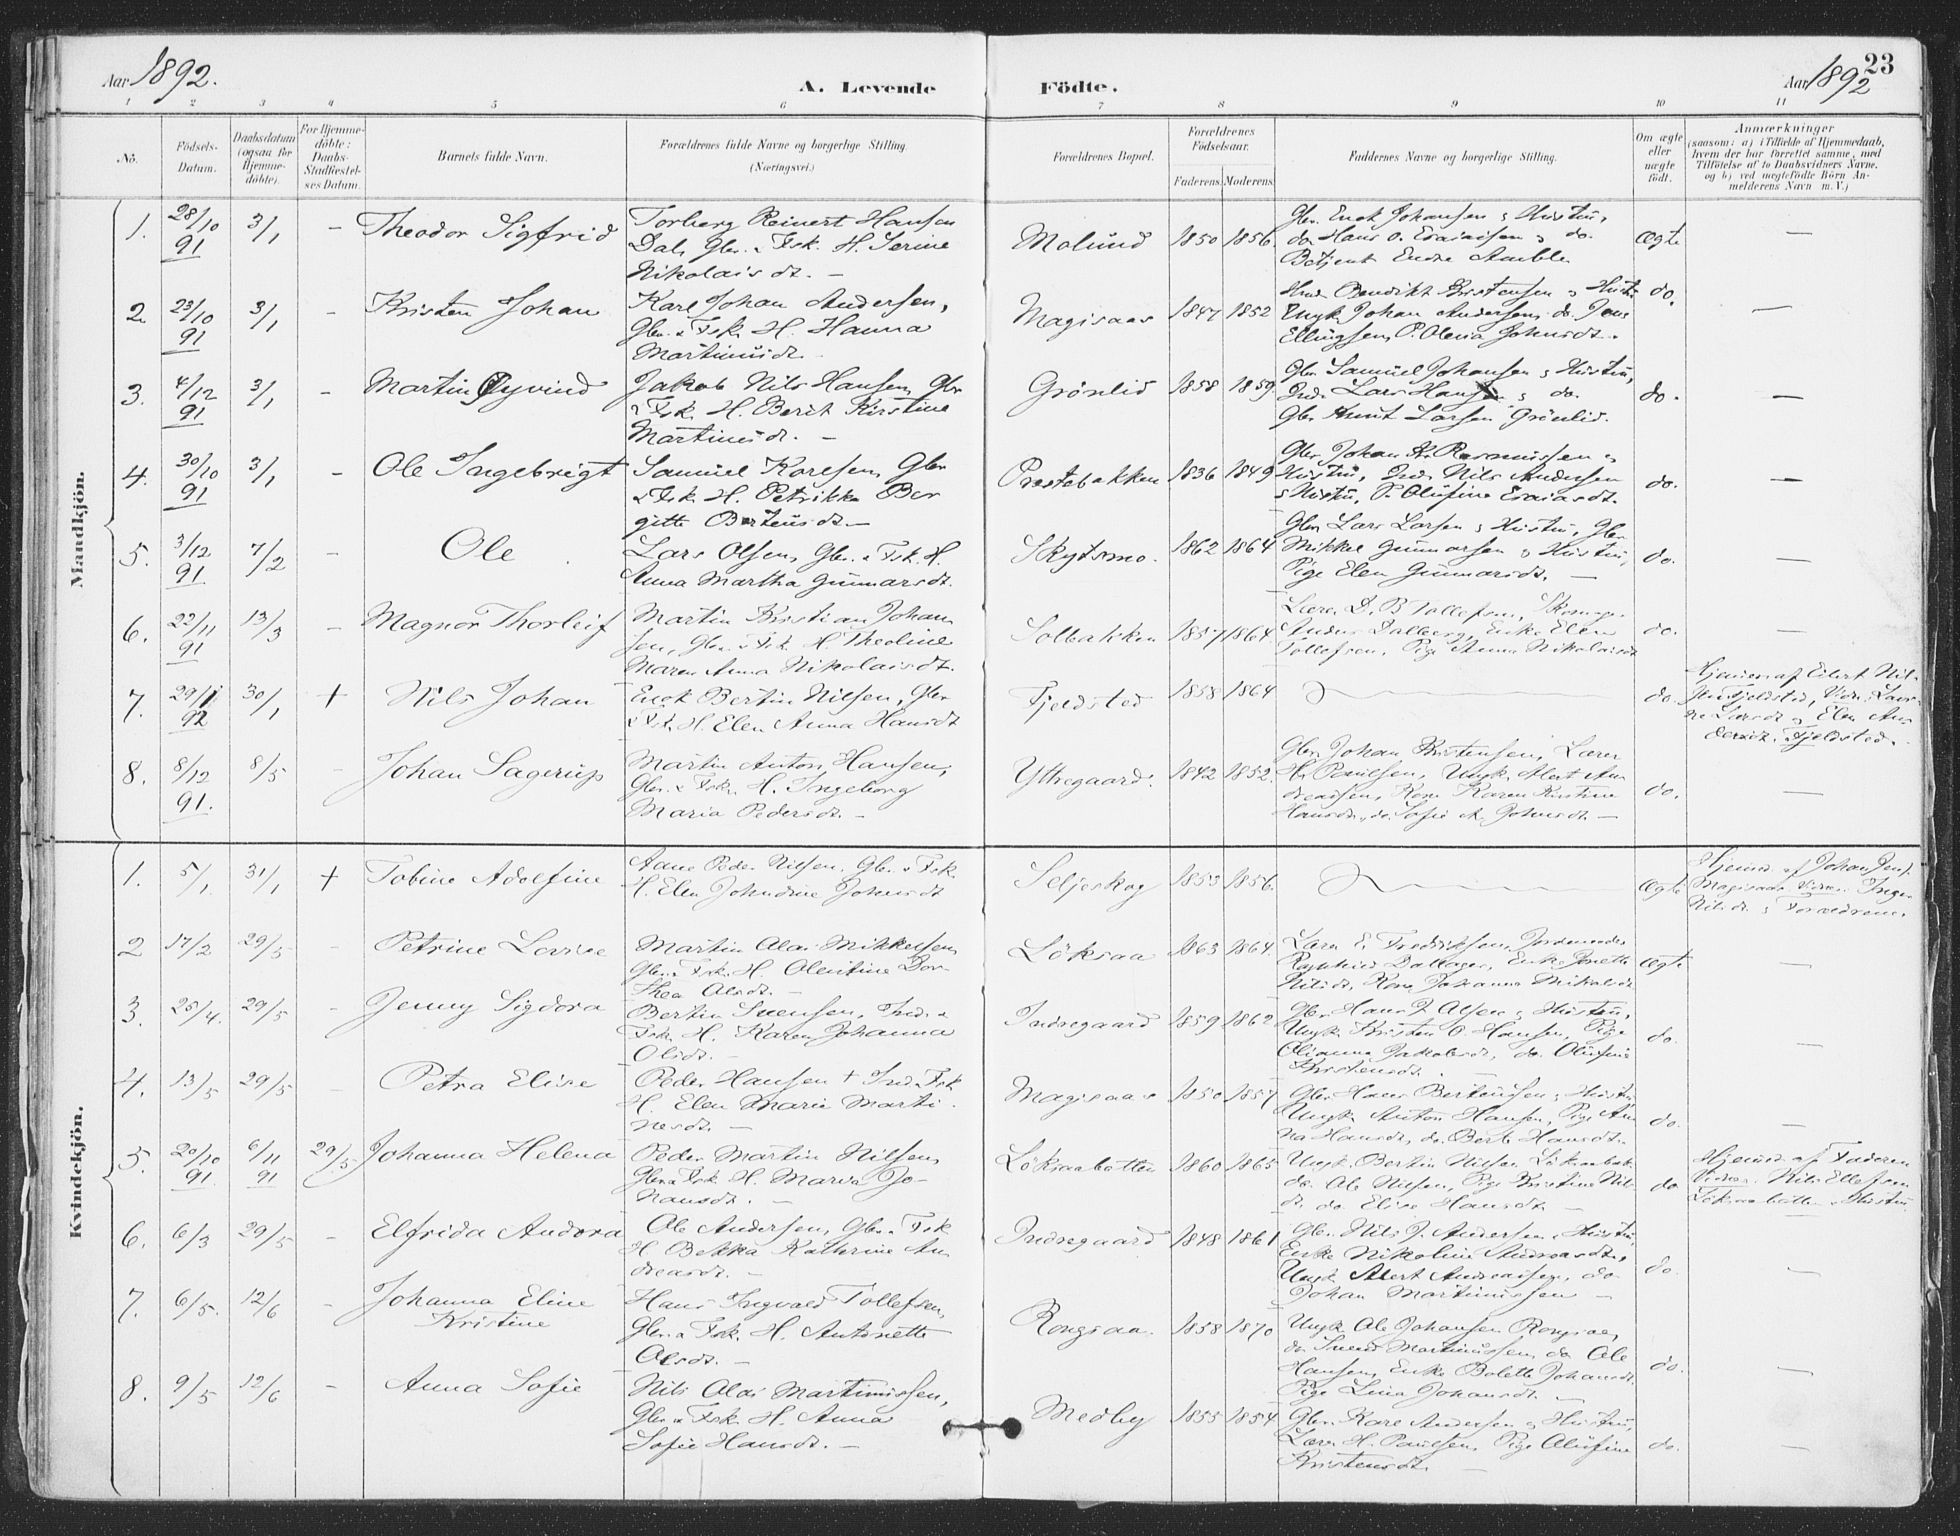 Aar 1892.
A. Levende
Födte.
Aar 1892
23
1 2 3 4 5 6 7 8 9 10 11
No.
Födsels-Datum.
Daabsdatum (ogsaa for Hjemme-döbte).
For Hjemme-döbte: Daabs-Stadfæstel-ses Datum.
Barnets fulde Navn.
Forældrenes fulde Navne og borgerlige Stilling. (Næringsvei.)
Forældrenes Bopæl.
Forældrenes Födselsaar.
Faderens. Moderens.
Faddernes Navne og borgerlige Stilling.
Om ægte eller uægte födt.
Anmærkninger
(saasom: a) i Tilfælde af Hjemmedaab, hvem der har forrettet samme, med Tilföielse af to Daabsvidners Navne, og b) ved uægtefödte Börn An-melderens Navn m. V.)
Mandkjön.
1. 28/10 91 3/1 - Theodor Sigfrid
Torberg Reinert Hansen
Dal, Gbr. & Fsk. H. Serine
Nikolaisdt. -
Molund 1850 1856.
Gbr. Enok Johansen & Hustru,
do Hans O. Esaiasen & do.
Betjent Endre
Ægte -
2. 23/10 91 3/1 - Kristen Johan
Karl Johan Andersen,
Gbr. & Fsk. H. Hanna
Martinusdt. -
Magisaas 1847 1852
Benedikt Kristensen & Hustru
Ungk. Johan Andersen, do. Jens
Ellingsen, P. Olena Johnsdt.
do. -
3. 4/12 91 3/1 - Martin Øyvind
Jakob Nils Hansen, Gbr
& Fsk. H. Berit Kirstine
Martinusdt. -
Grönlid 1858 1859.
Gbr. Samuel Johansen & Hustru,
Ind. Lars Hansen & do.
Gbr. Larsen Grönlid.
do. -
4. 30/10 91 3/1 - Ole Ingebrigt
Samuel Karlsen, Gbr
& Fsk. H. Petrikke Ber
gitte Berteusdt. -
Prestebakken 1836 1849
Gbr. Johan H. Rasmussen &
Hustru, Ind. Nils Andersen
& Hustru, P. Olufine Esaiasdt.
do. -
5. 3/12 91. 7/2 - Ole
Lars Olsen, Gbr. & Fsk. H.
Anna Martha Gunnarsdt.
Skydsmo. 1862 1864
Gbr. Lars Larsen & Hustru, Gbr
Mikkel Gunnarsen & Hustru,
Pige Elen Gunnarsdt. -
do. -
6. 22/11 91 13/3 - Magnor Thorleif
Martin Kristian Johan
sen, Gbr. & Fsk. H. Theoline
Maren Anna Nikolaisdt.
Solbakken 1857 1864.
Lærer D. B Tollefsen, Skomager
Anders Dalberg, Enke Elen
Tollefsen, Pige Anna Nikolaisdt
do. -
7. 29/1 92 30/1 + Nils Johan
Enok Bertin Nilsen, Gbr
& Fsk. H. Elen Anna Hansdt
Fjeldsted 1858 1864
do.
Hjemmed. af Eilert Nil-
sen Fjeldsted, Vidn. Lavi-
ne Larsdt & Elen An
dersdt. Fjeldsted.
8. 8/12 91. 8/5 - Johan Sagerup
Martin Anton Hansen,
Gbr. & Fsk. H. Ingeborg
Maria Pedersdt. -
Yttregaard. 1842 1852.
Gbr. Johan Kristensen, Lærer
H. Paulsen, Ungk. Alert An
dreassen, Kone Karen Kirstine
Hansdt., do. Sofie A. Johnsdt. -
do. -
Kvindekjön.
1. 5/1 31/1 + Tobine Adolfine
Peder Nilsen, Gbr. & Fsk
H. Elen Johndine Johnsdt
Seljeskog 1853 1856.
Ægte
Hjemmed. af Johan Jens.
Magisaas Vidn. Inger
Nilsdt & Forældrene.
2 17/2 29/5 - Petrine Lovise
Martin Olai Mikkelsen,
Gbr. & Fsk. H. Olentine Dor-
thea Olsdt. -
Löksaa 1863 1864
Lærer E. Fredriksen, Jordemoder
Dallager, Enke Jonette
Nilsdt, Kone Johanna Mikalsdt
Ægte -
3. 25/4. 29/5 - Jenny Sigdora
Bertin Svensen, Ind. &
Fsk. H. Karen Johanna
Olsdt. -
Indregaard 1859 1862
Gbr. Hans J. Olsen & Hustru,
Ungk. Kristen O. Hansen, Pige
Olianna Jakobsdt, do. Olufine
Kristensdt. -
do. -
4. 13/5 29/5 - Petra Elise
Peder Hansen + Ind. Fsk
H. Elen Maria Marti
nesdt. -
Magisaas 1850 1857
Gbr. Hans Berteusen & Hustru
Ungk. Anton Hansen, Pige An
na Hansdt, do. Berit Hansdt.
do. -
5. 20/10 91. 6/11 91 29/5 Johanna Helena
Peder Martin Nilsen,
Gbr. & Fsk. H. Maria Jo-
hansdt. -
Löksaabotten 1860 1865
Ungk. Bertin Nilsen Löksaabot.
do. Ole Nilsen, Pige Kristine Nils
dt, do Elise Hansdt. -
do
Hjemmed. af Faderen
Vidner. Nils Ellefsen
Löksaabotten & Hustru
6. 6/3 29/5 - Elfrida Andora
Ole Andersen, Gbr. & Fsk
H. Bekka Kathrine An
dreasdt. -
Indregaard 1848 1861
Gbr. Nils J. Andersen, Hustru
Enke Nikoline Andreasdt.,
Ungk Alert Andreassen, do
Johan Martinussen -
do. -
7. 6/5. 12/6 - Johanna Eline
Kristine
Hans Ingvald Tollefsen,
Gbr. & Fsk. H. Antonette
Olsdt. -
Rongsaa. 1858 1870
Ungk Ole Johansen Rongsaa,
do Svend Martinussen, do Ole
Hansen, Enke Bolette Johansdt
Pige Lina Johansdt. -
do. -
8. 9/5 12/6 - Anna Sofie
Nils Olai Martinussen,
Gbr. & Fsk. H. Anna
Sofie Hansdt. -
Medby 1855 1854
Gbr. Karl Andersen & Hustru,
Lærer H. Paulsen, Pige Olufine
Kristensdt. -
do. -